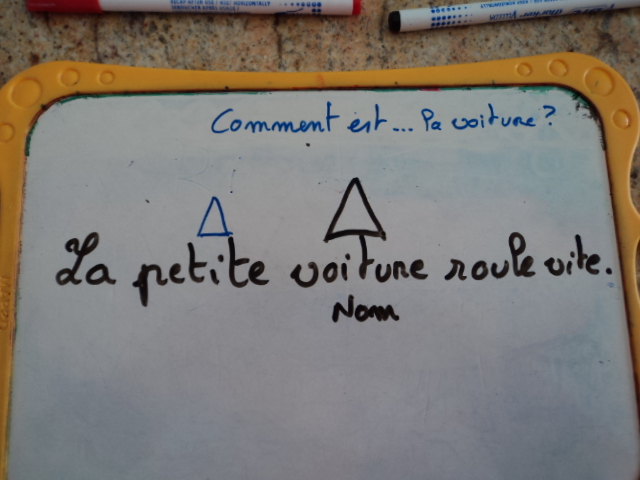 Comment est... la voiture ?
La petite voiture roule vite.
Nom